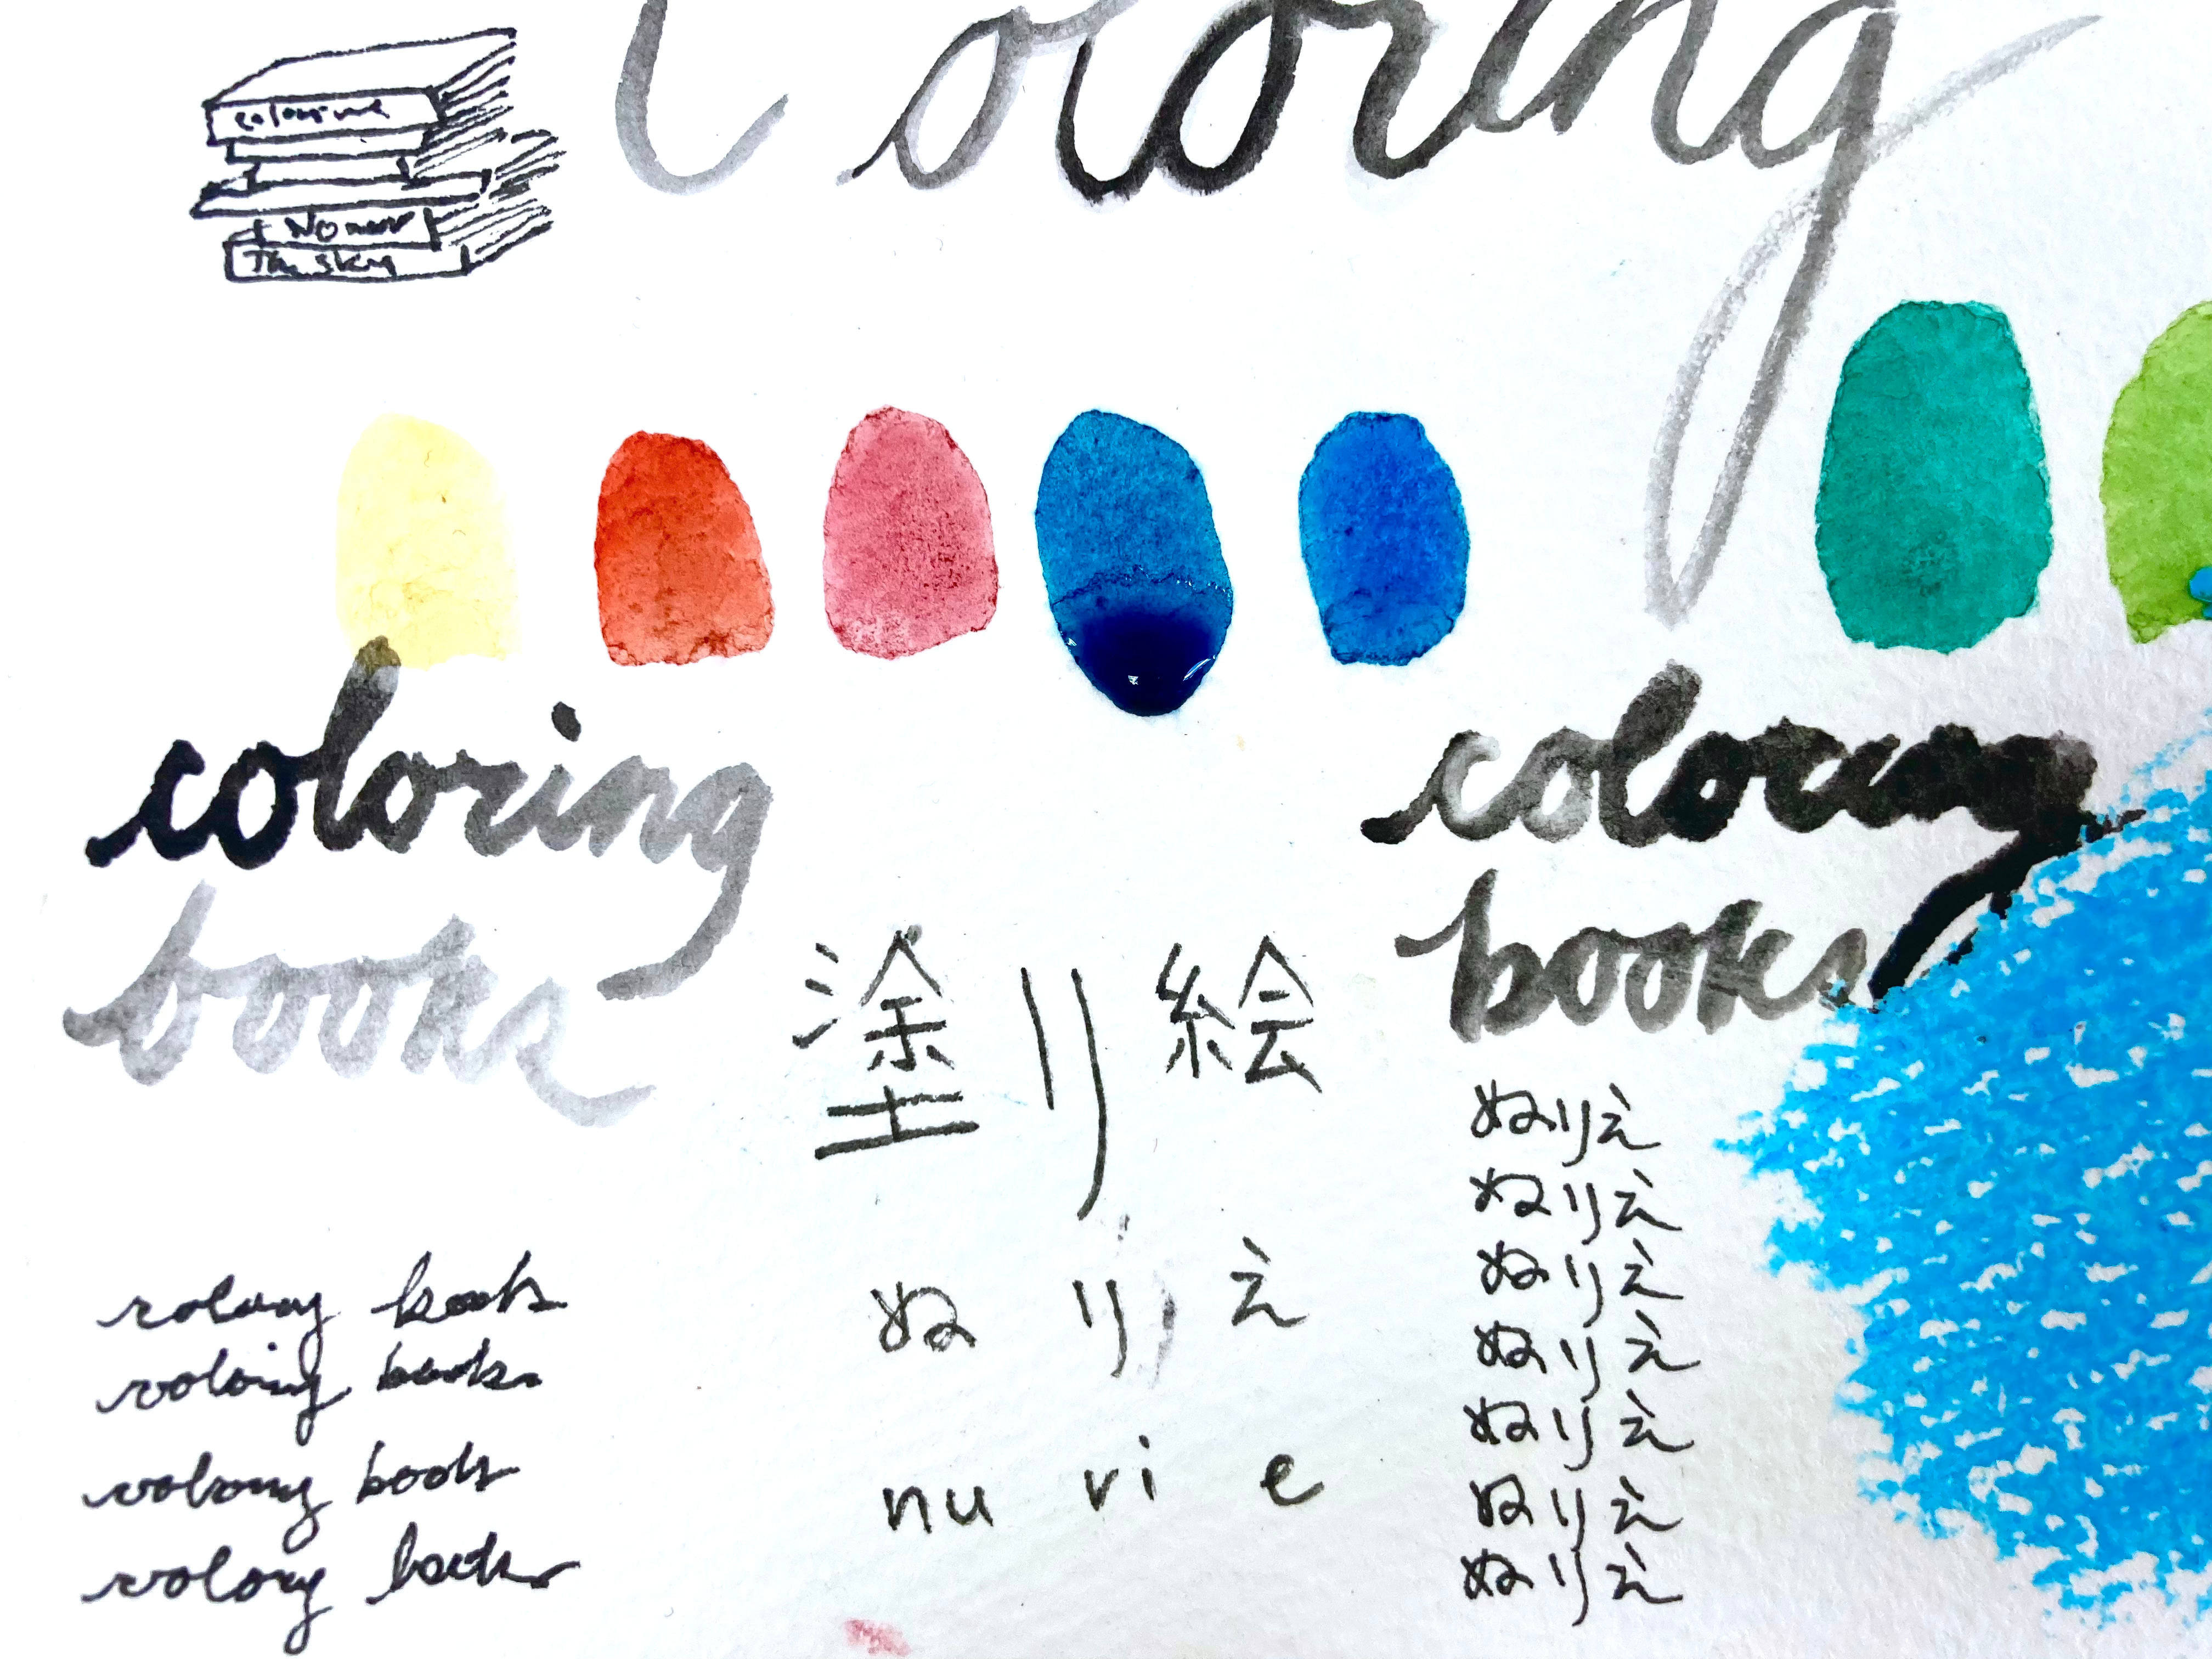 Coloring
coloring
The sky
coloring
books
coloring
books
塗り絵
ぬりえ
nu ri e
ぬりえ
ぬりえ
ぬりえ
ぬりえ
ぬりえ
ぬりえ
ぬりえ
coloring books
coloring books
coloring books
coloring books